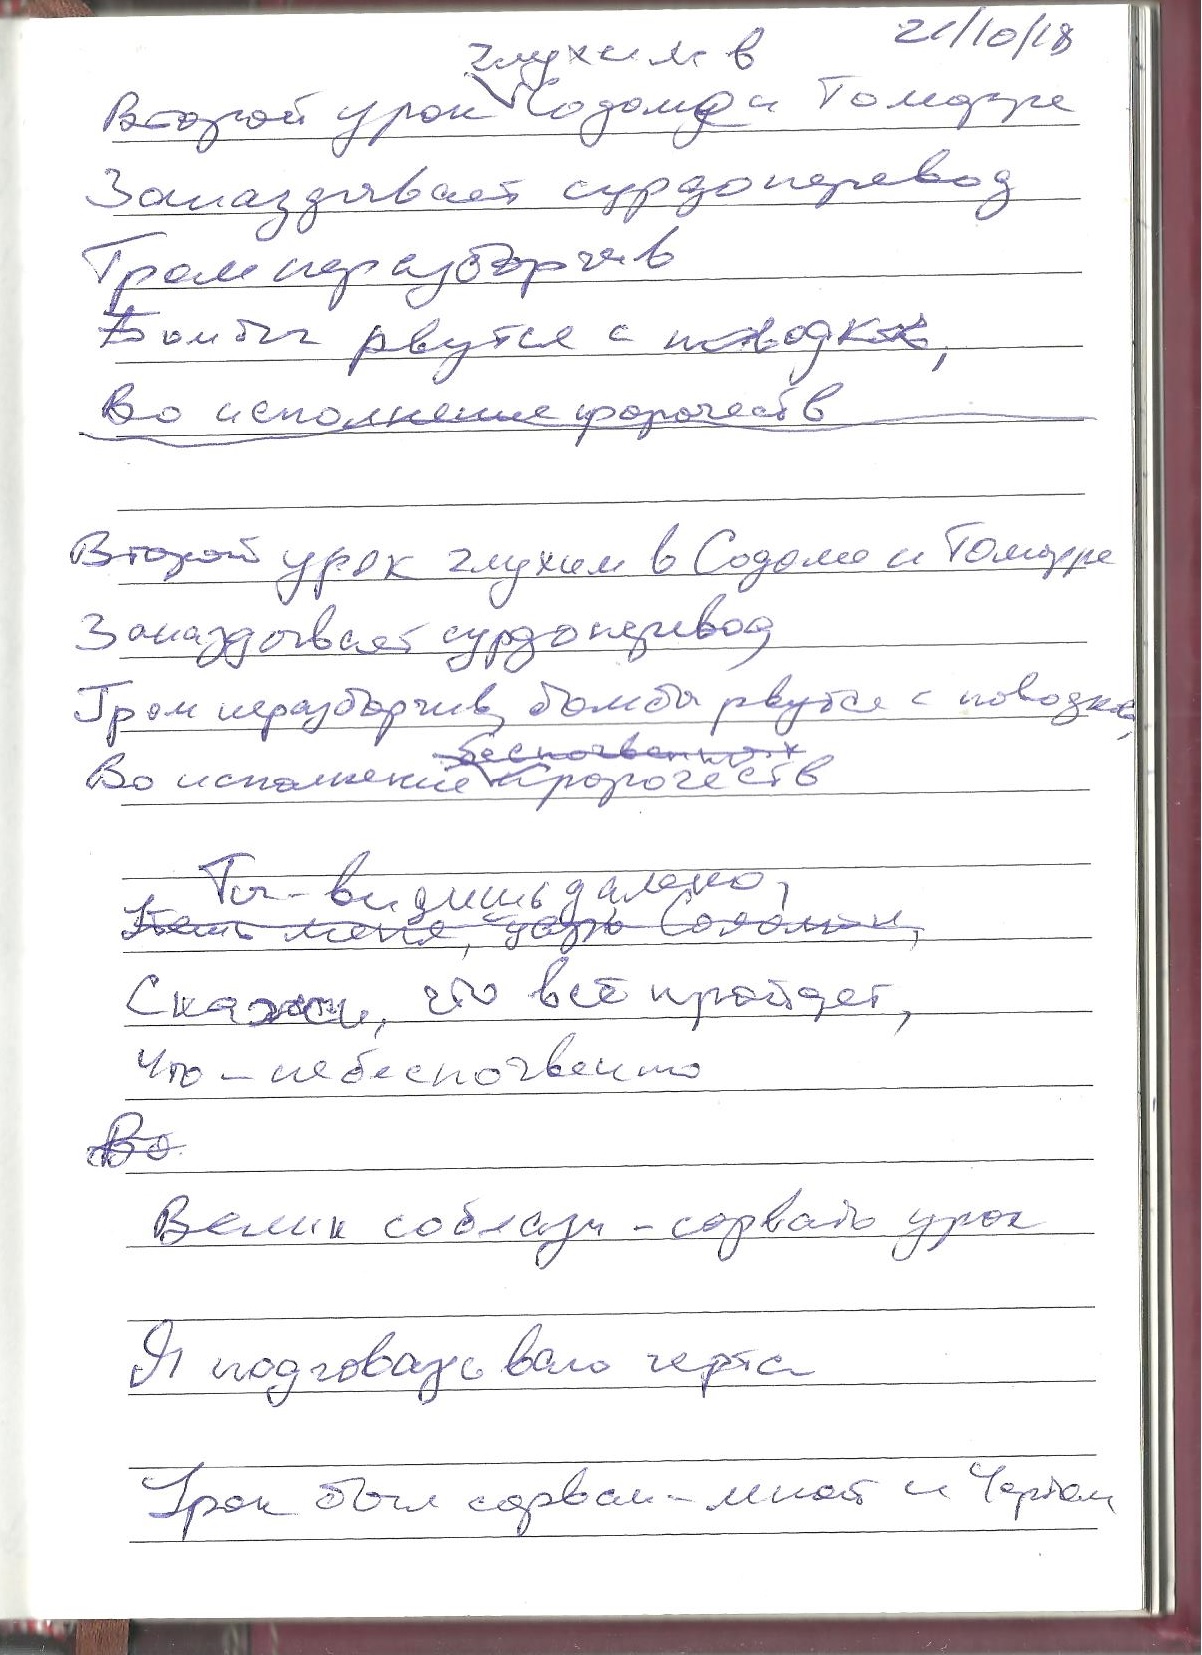 21/10/18
глухим в
Второй урок Содоме и Гоморре
Запаздывает сурдоперевод
Гром неразборчив
Бомбы рвутся с поводков,
Во исполнение пророчеств
Второй урок глухим в Содоме и Гоморре
Запаздывает сурдоперевод
Гром неразборчив, бомбы рвутся с поводков,
беспочвенных
Во исполнение пророчеств
Ты - видишь далеко,
меня, царь Соломон,
Скажи, что всё пройдет,
Что - небеспочвенно
Во
Велик соблазн - сорвать урок
Я подговариваю черта
Урок был сорван - мной и Чертом